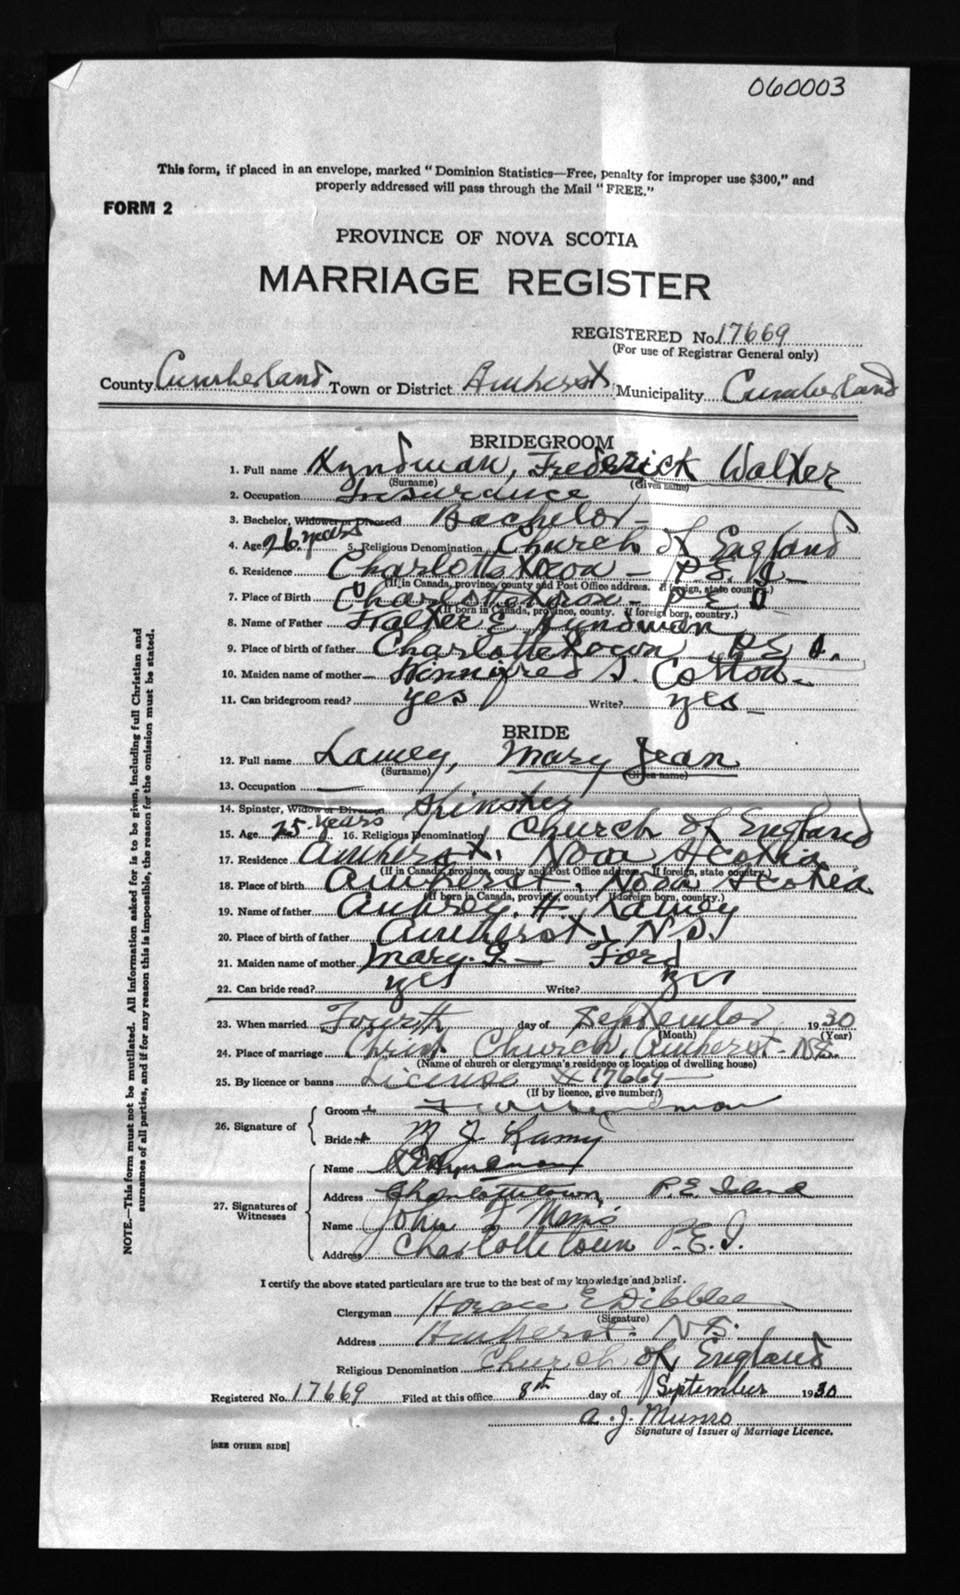 060003
This form, if placed in an envelope, marked "Dominion Statistics—Free, penalty for improper use $300," and
properly addressed will pass through the Mail "FREE."
FORM 2
PROVINCE OF NOVA SCOTIA
MARRIAGE REGISTER
REGISTERED No. 17669
(For use of Registrar General only)
County Cumberland Town or District Amherst Municipality Cumberland
BRIDEGROOM
1. Full name Hyndman, Frederick Walter
(Surname) (Given name)
2. Occupation Insurance
3. Bachelor, Widower or Divorced Bachelor
4. Age 26 years 5. Religious Denomination Church of England
6. Residence Charlottetown - P.E.I.
(If in Canada, province, county and Post Office address. If foreign, state country.)
7. Place of Birth Charlottetown - P.E.I
(If born in Canada, province, county. If foreign born, country.)
8. Name of Father Walter E Hyndman
9. Place of birth of father Charlottetown P.E.I.
10. Maiden name of mother Winnifred S. Cotton
11. Can bridegroom read? yes Write? yes
BRIDE
12. Full name Lamey, Mary Jean
(Surname) (Given name)
13. Occupation —
14. Spinster, Widow or Divorced Spinster
15. Age 25 years 16. Religious Denomination Church of England
17. Residence Amherst, Nova Scotia
(If in Canada, province, county and Post Office address. If foreign, state country.)
18. Place of birth Amherst, Nova Scotia
(If born in Canada, province, county. If foreign born, country.)
19. Name of father Aubrey H. Lamey
20. Place of birth of father Amherst, N.S.
21. Maiden name of mother Mary Ford
22. Can bride read? yes Write? yes
23. When married Fourth day of September 1930
(Month) (Year)
24. Place of marriage Christ Church, Amherst - N.S.
(Name of church or clergyman's residence or location of dwelling house)
25. By licence or banns License # 17669
(If by licence, give number.)
26. Signature of
Groom
Bride M J Lamey
27. Signatures of Witnesses
Name
Address Charlottetown, P.E. Island
Name John
Address Charlottetown P.E.I.
I certify the above stated particulars are true to the best of my knowledge and belief.
Clergyman Horace E Dibblee
(Signature)
Address Amherst. N.S.
Religious Denomination Church of England
Registered No. 17669 Filed at this office 8th day of September 1930
A. J. Munro
Signature of Issuer of Marriage Licence.
[SEE OTHER SIDE]
NOTE.—This form must not be mutilated. All information asked for is to be given, including full Christian and
surnames of all parties, and if for any reason this is impossible, the reason for the omission must be stated.